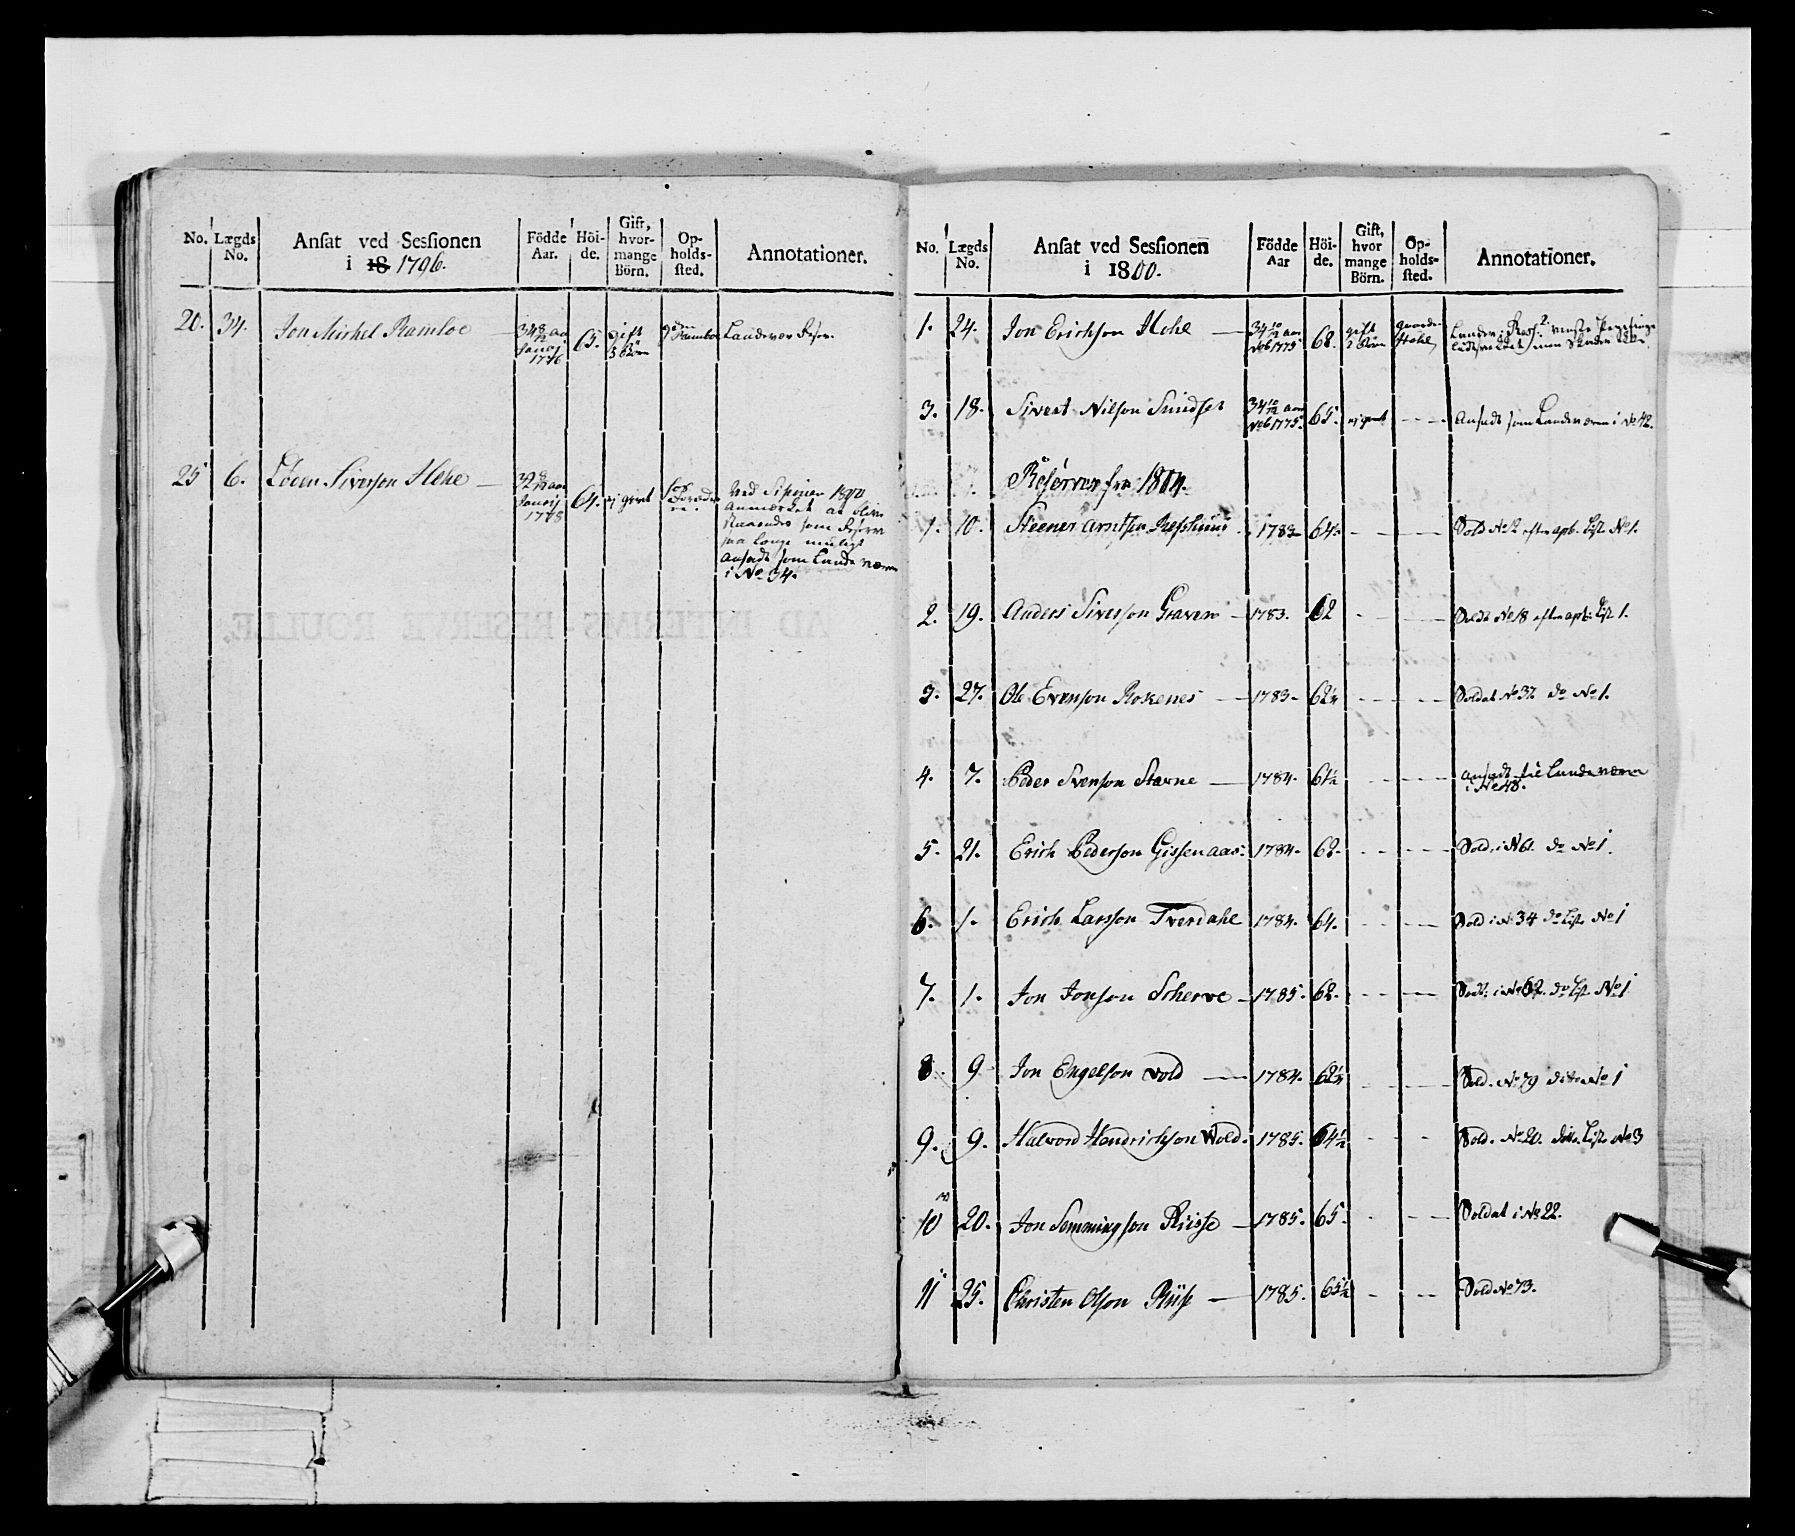 No. Lægds No. Ansat ved Sessionen i 18 1796. Födde Aar. Höi-de. Gift, hvor-mange Börn. Op-holds-sted. Annotationer.
20. 34. Jon Mickel Ramloe — 34 8/12 aar Januarj 1776 65. gift 3 Börn Ramloe Landevær Reserv.
25 6. Siverson Hehe — 32 8/12 aar Januarj 1778 64. ej givt
Ved Sessionen
anmerket at blive
staaende som Reserv
saa længe muligt
ansadt som Landeværn
i No 34.
AD INTERIMS RESERVE ROULLE,
No. Lægds No. Ansat ved Sessionen i 1800. Födde Aar Höi-de. Gift, hvor mange Börn. Op-holds-sted. Annotationer.
1. 24. Jon Erichson Hohl — 34 10/12 aar Nob 1775 68. gift 2 Börn Hohl
3. 18. Sivert Nilson Sundset 34 10/12 aar Nob 1775. 65. ej givt — Ansadt som Landeværn i No 42.
Reserver fra 1804.
1. 10. Steener Arntsen 1783 64 1/2 — Sold No 12 efter apb. List No 1.
2. 19. Anders Siverson Graven — 1783. 62 — Sold No 18 efter apb. List 1.
3. 27. Ole Evenson Rokenes — 1783 — 62 1/4 — Soldat No 37 do No 1.
4. 7. Peder Svenson Starne — 1784. 61 1/2 — ansadt til Landeværn
i No 48.
5. 21. Erich Pederson Gissenaas. 1784. 62. — Sold. i N 61. do No 1.
6. 1. Erich Larsson Tverdahl 1784. 64. — Sold i No 34 do List No 1
7. 1. Jon Jonson Scherve — 1785. 62. — Sold: i No 62. do List No 1
8 9 Jon Engelson Vold — 1784. 62 1/4 — Sold. No 79 ditto No 1
9. 9. Halvord Hendrichson Wold. 1785. 64 1/2 — Sold. No 20. ditto List No 3
10 20. Jon Semmingson Riise — 1785. 65. — Soldat i No 22.
11 25. Christen Olson Riise — 1785. 63 1/2 — Sold No 73.